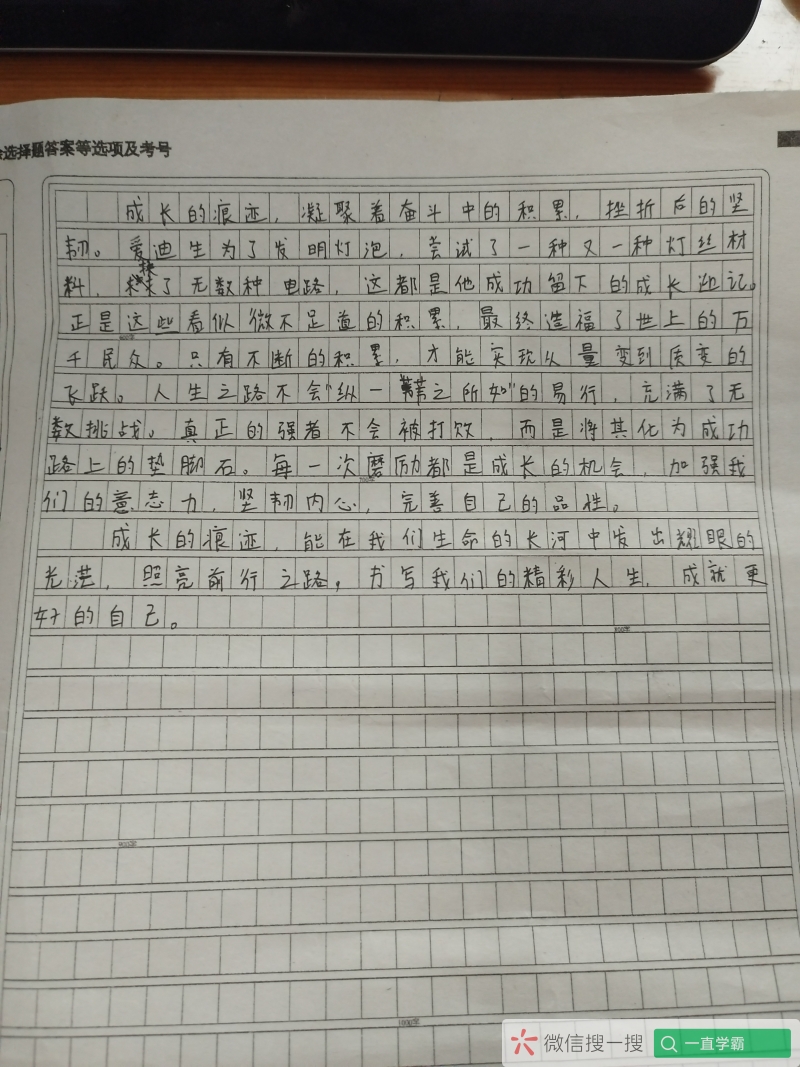 选择题答案等选项及考号
成长的痕迹，凝聚着奋斗中的积累，挫折后的坚
韧。爱迪生为了发明灯泡，尝试了一种又一种灯丝材
料，换了无数种电路，这都是他成功留下的成长迹记。
正是这些看似微不足道的积累，最终造福了世上的万
千民众。只有不断的积累，才能实现从量变到质变的
飞跃。人生之路不会“纵一苇之所如”的易行，充满了无
数挑战。真正的强者不会被打败，而是将其化为成功
路上的垫脚石。每一次磨励都是成长的机会，加强我
们的意志力，坚韧内心，完善自己的品性。
成长的痕迹，能在我们生命的长河中发出耀眼的
光茫，照亮前行之路，书写我们的精彩人生，成就更
好的自己。
800字
900字
1000字
微信搜一搜
一直学霸